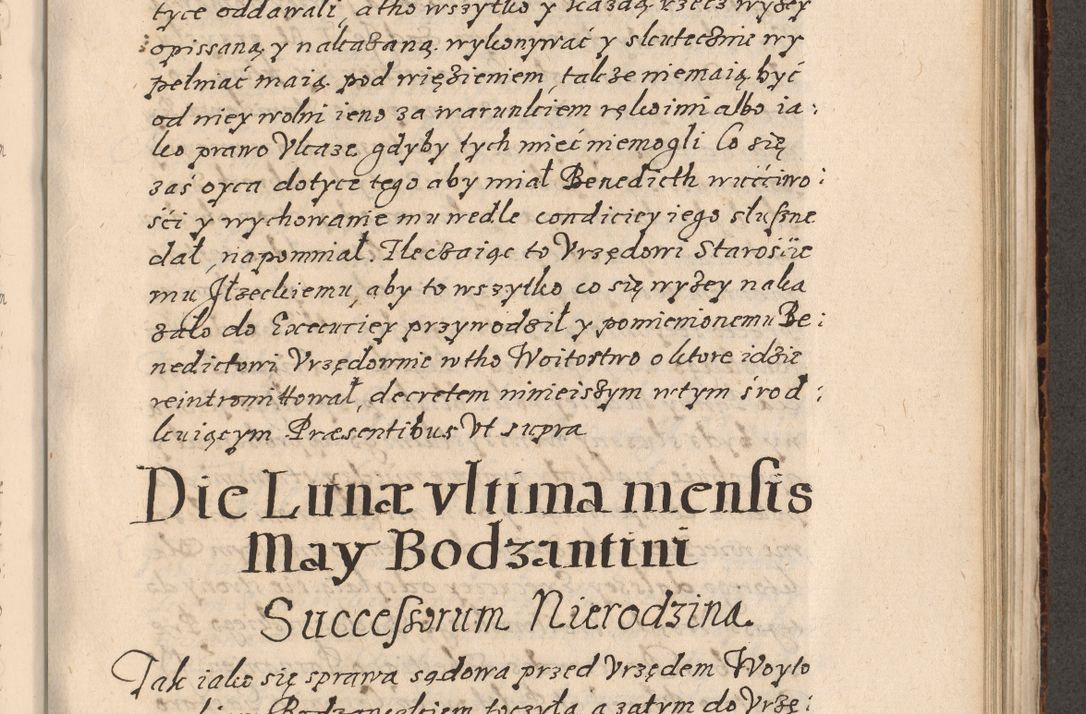 tyce oddawali, a tho wszytko y każdą rzecz wyżey
opissaną y nakazaną, wykonywać y skutecznie wy
pełniać maią pod więzieniem, także niemaią być
od niey wolni ieno za warunkiem rękoimi albo ia:
ko prawo Vkaże gdyby tych mieć niemogli Co się
zaś oyca dotyce tego aby miał Benedicth wućciwo:
ści y wychowanie mu wedle condiciey iego słuszne
dał, napomniał. Zleczaiąc to Vrzędowi Starościie
mu Jłżeckiemu, aby to wszytko co się wyżey naka
zało do Execuciey przywodził y pomienionemu Be:
nedictowi Vrzędownie wtho Woitostwo o ktore idzie
reintromittował, decretem ninieiszym wtym środ:
kuiącym Præsentibus Vt supra
Die Lunæ vltima mensis
May Bodzantini
Successorum Nierodzina.
Tak iako się sprawa sądowa przed Vrzędem Woyto
Bodzanckiem toczyła, a zatym do Vrzę: